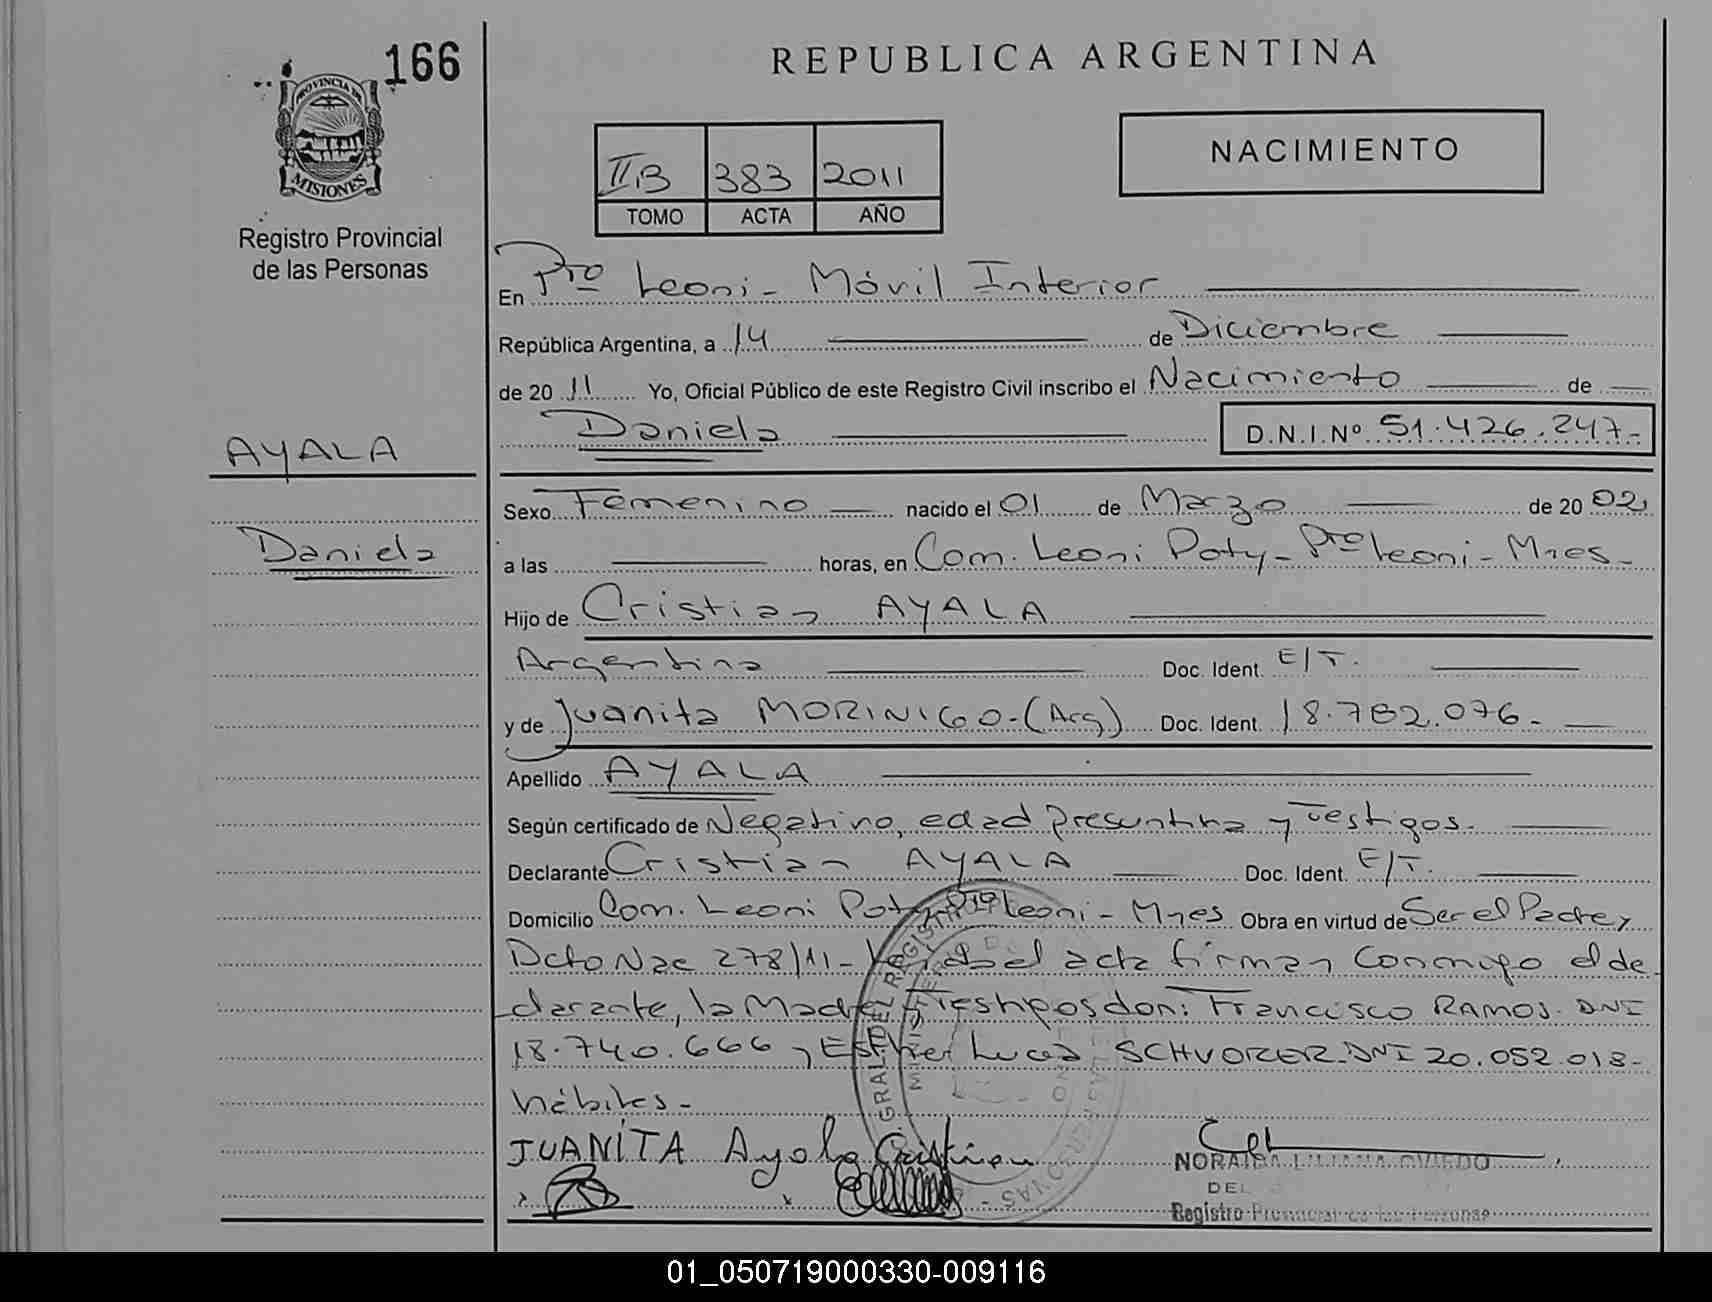 166
REPUBLICA ARGENTINA
PROVINCIA DE
MISIONES
Registro Provincial
de las Personas
II B 383 2011
TOMO ACTA AÑO
NACIMIENTO
En Pto Leoni - Móvil Interior
República Argentina, a 14 de Diciembre
de 20 11 Yo, Oficial Público de este Registro Civil inscribo el Nacimiento de
Daniela D.N.I.Nº 51.426.247-
AYALA
Daniela
Sexo Femenino nacido el 01 de Marzo de 20 02
a las horas, en Com. Leoni Poty - Pto Leoni - Mnes -
Hijo de Cristian AYALA
Argentina Doc. Ident. E/T.
y de Juanita MORINIGO - (Arg) Doc. Ident. 18.782.076-
Apellido AYALA
Según certificado de Negativo, edad presuntiva y Testigos.
Declarante Cristian AYALA Doc. Ident. E/T.
Domicilio Com. Leoni Poty Pto Leoni - Mnes Obra en virtud de Ser el Padre y
Dcto Nac 278/11 - el acta firman conmigo el de
clarante, la Madre Testigos don: Francisco RAMOS. DNI
18.740.666 y Esther Lucia SCHVORER DNI 20.052.018-
hábiles -
JUANITA Ayala Cristian
NORAIDA LILIANA OVIEDO
DEL
Registro Provincial de las Personas
GRAL DEL REGISTRO
01_050719000330-009116